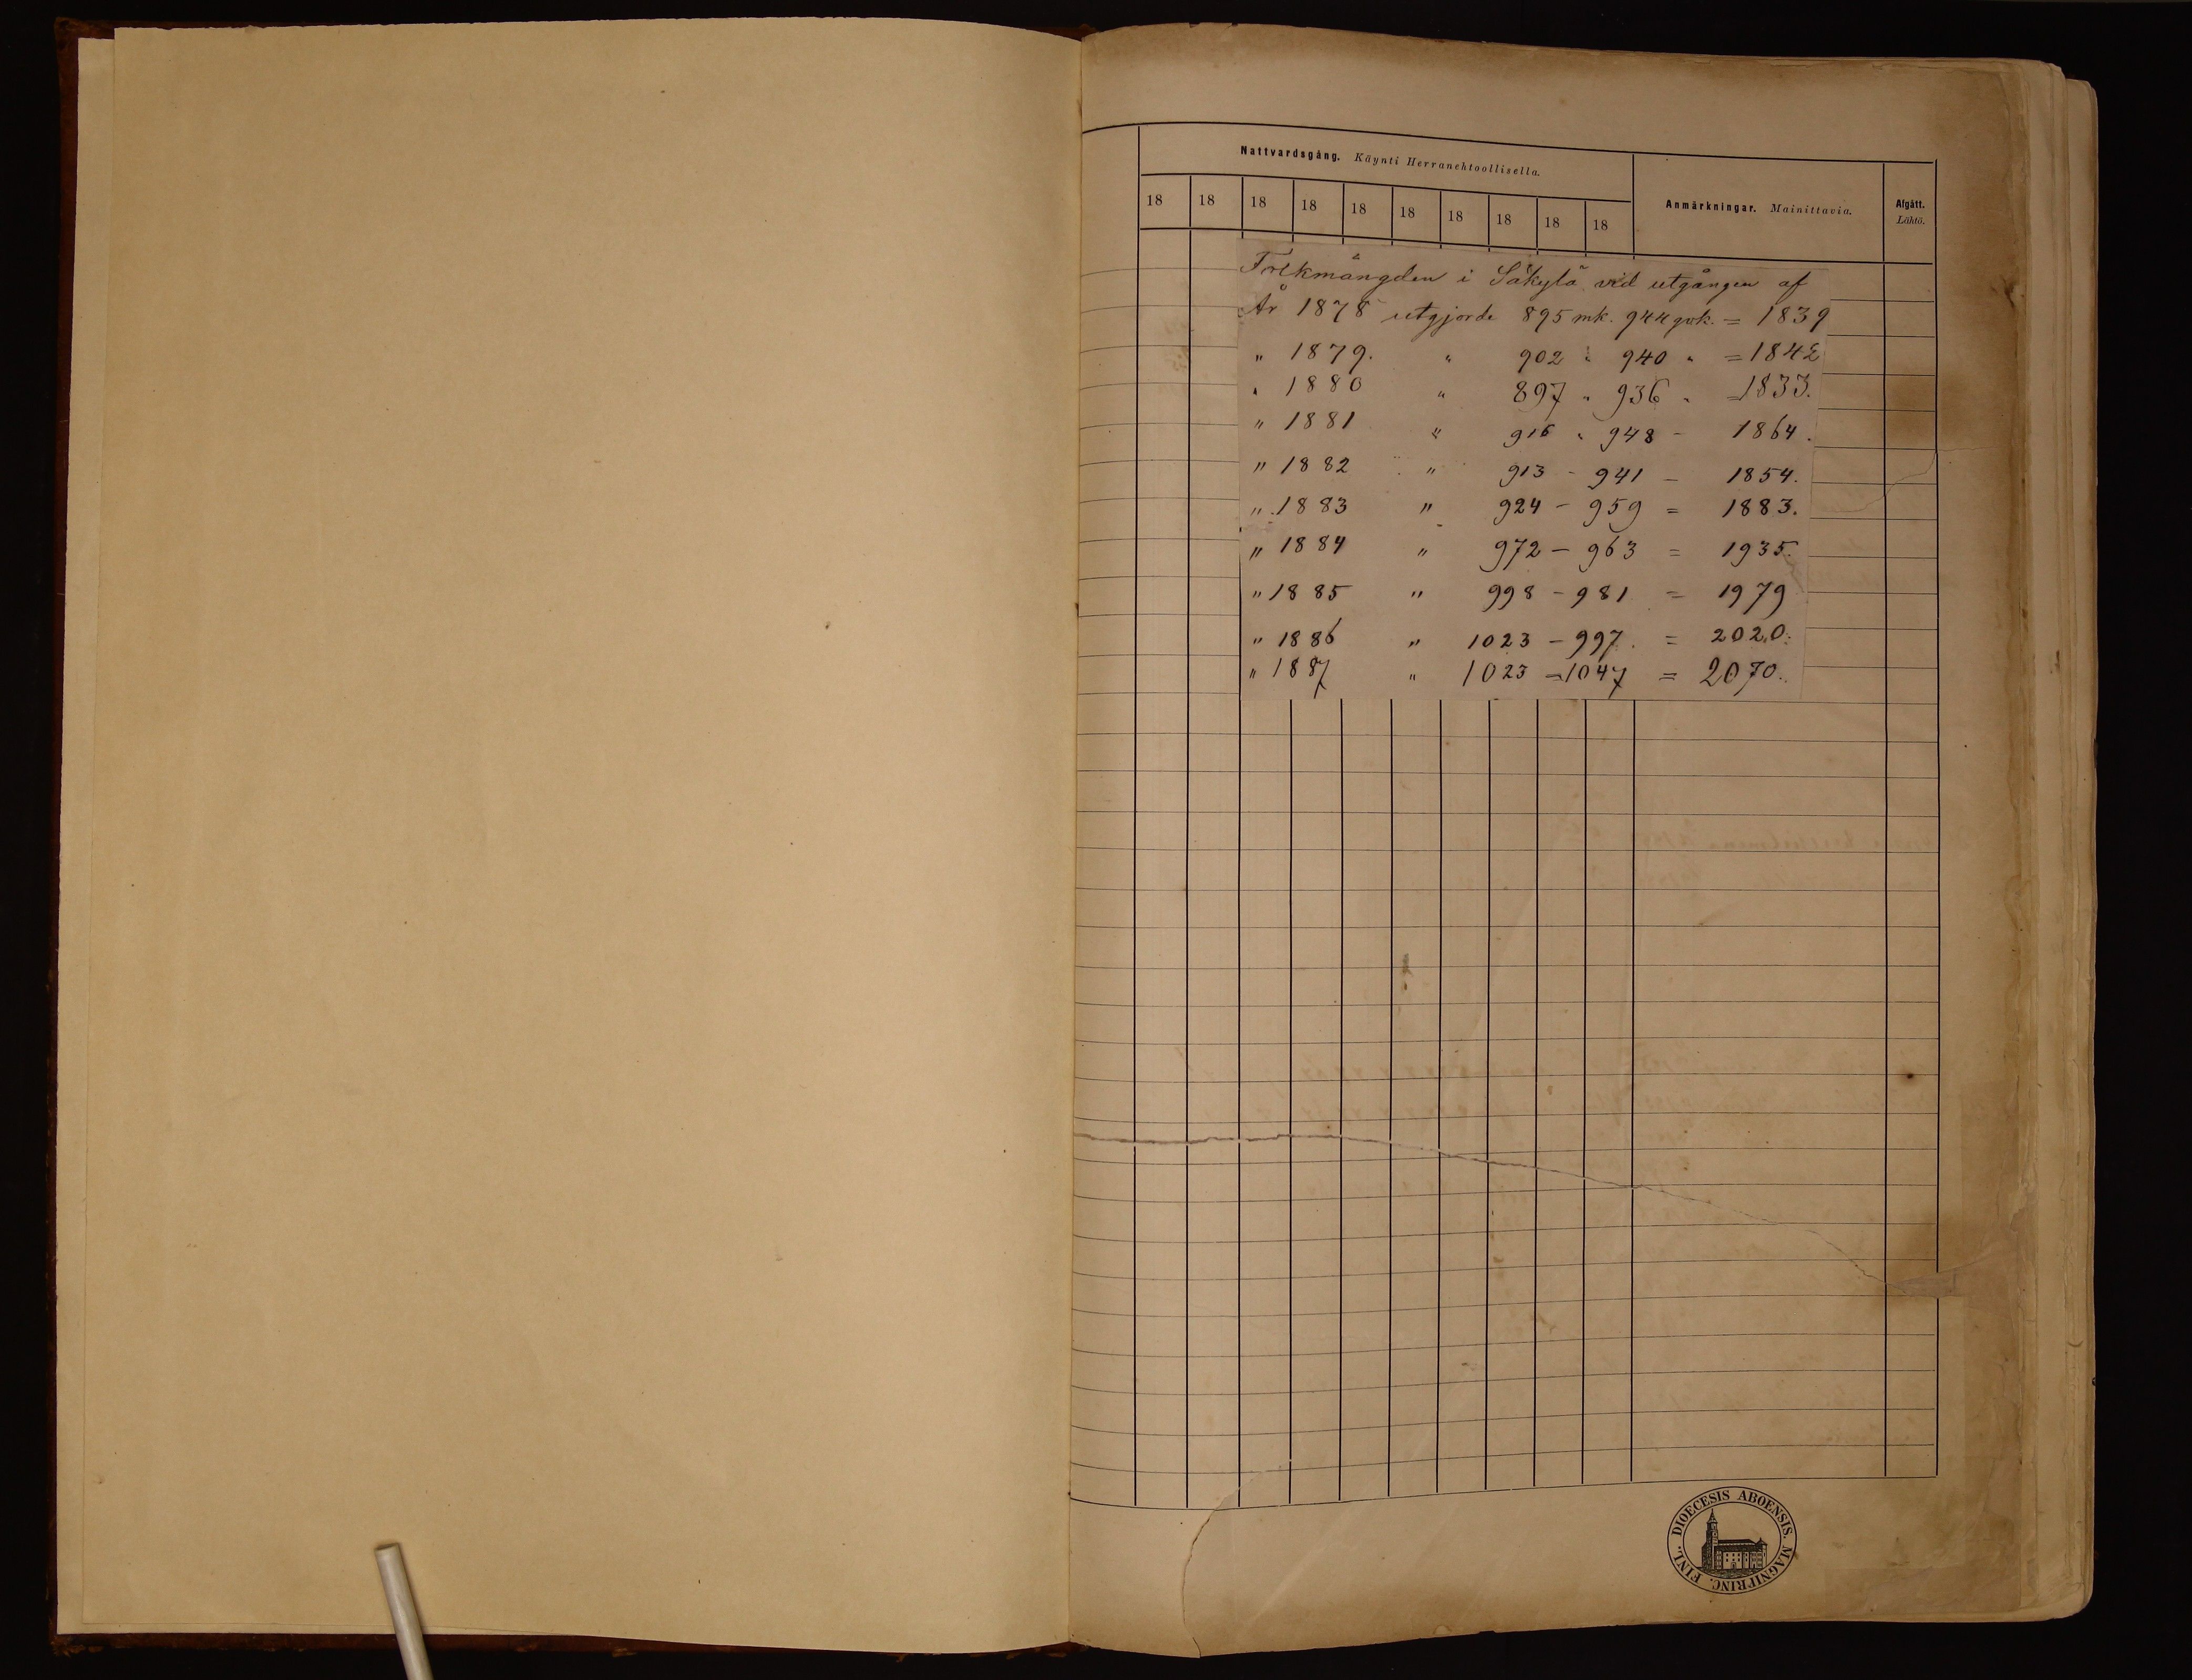 Nattvardsgång. Käynti Herranehtoollisella.
Anmärkningar. Mainittavia.
Afgått. Lähtö.
18 18 18 18 18 18 18 18 18 18
Folkmängden i Säkylä vid utgången af
År 1878 utgjorde 895 mk. 944 qvk. = 1839
" 1879. " 902 " 940 " = 1842
" 1880 " 897 " 936 " = 1833.
" 1881 " 916 " 948 - 1864.
" 1882 " 913 - 941 - 1854.
" 1883 " 924 - 959 = 1883.
" 1884 " 972 - 963 = 1935.
" 1885 " 998 - 981 = 1979
" 1886 " 1023 - 997. = 2020.
" 1887 " 1023 = 1047 = 2070.
DIOECESIS ABOENSIS. MAGNI PRINC. FINL.